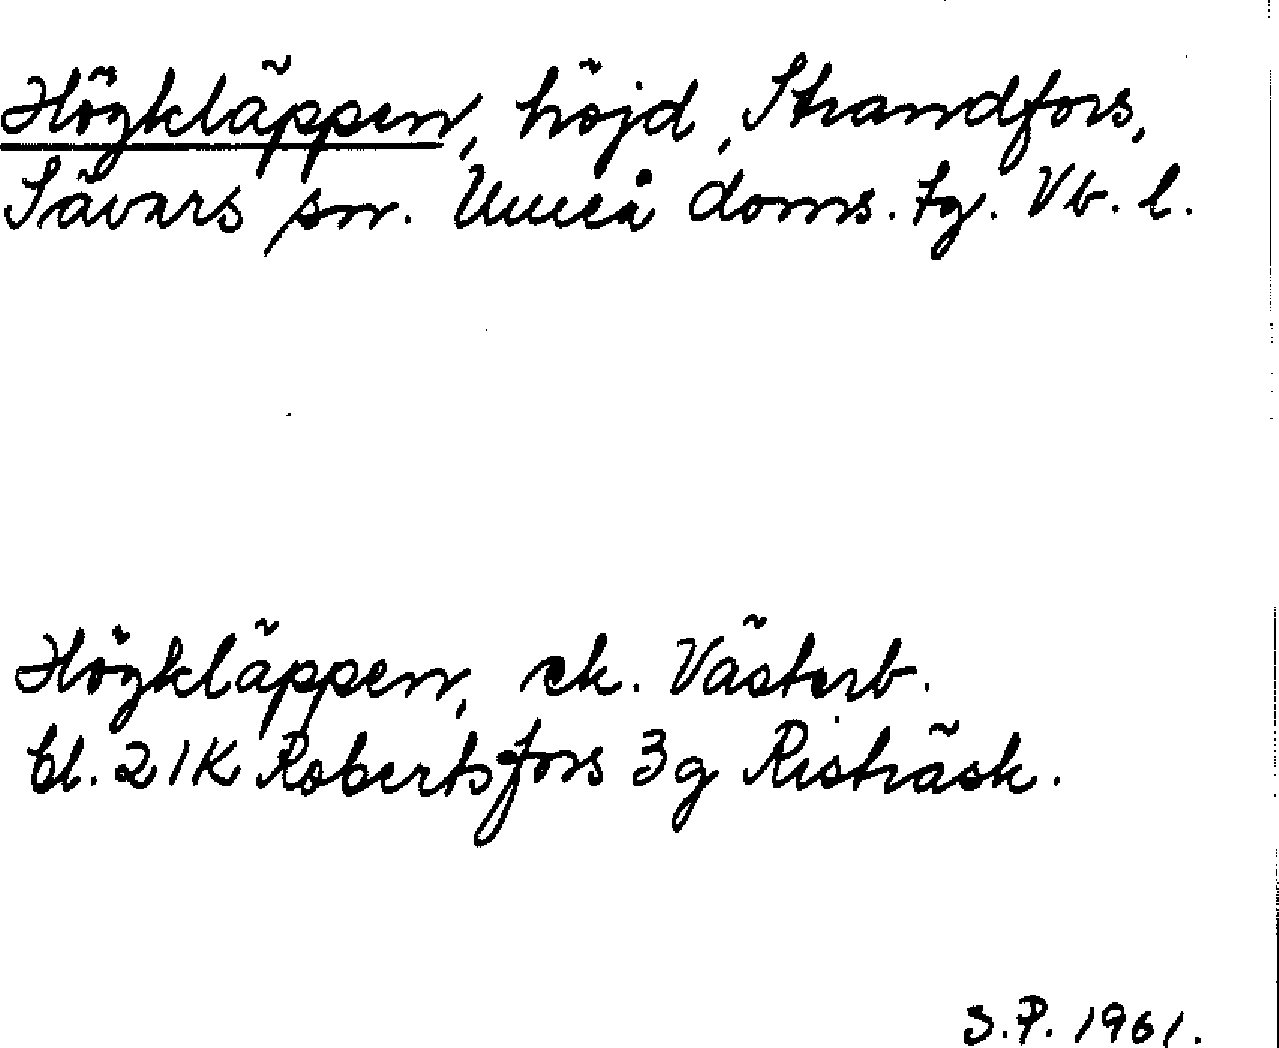 Högkläppen, höjd, Strandfors,
Sävars sn. Umeå doms. tg. Vb. l.
Högkläppen, ek. Västerb.
bl. 21K Robertsfors 3g Risträsk.
S.P. 1961.